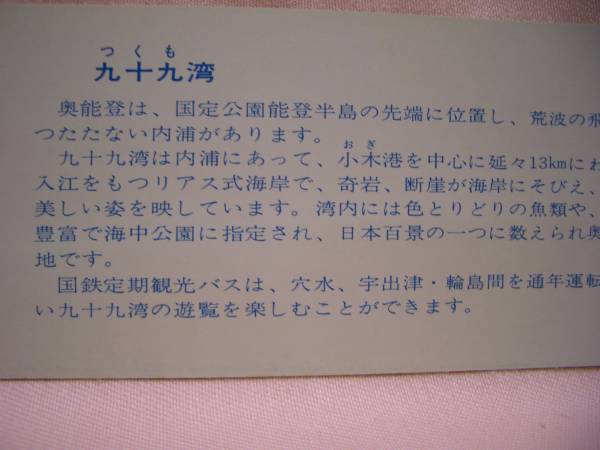 つくも
九十九湾
奥能登は、国定公園能登半島の先端に位置し、荒波の飛
つたたない内浦があります。
おぎ
九十九湾は内浦にあって、小木港を中心に延々13kmにわ
入江をもつリアス式海岸で、奇岩、断崖が海岸にそびえ、
美しい姿を映しています。湾内には色とりどりの魚類や、
豊富で海中公園に指定され、日本百景の一つに数えられ奥
地です。
国鉄定期観光バスは、穴水、宇出津・輪島間を通年運転
い九十九湾の遊覧を楽しむことができます。